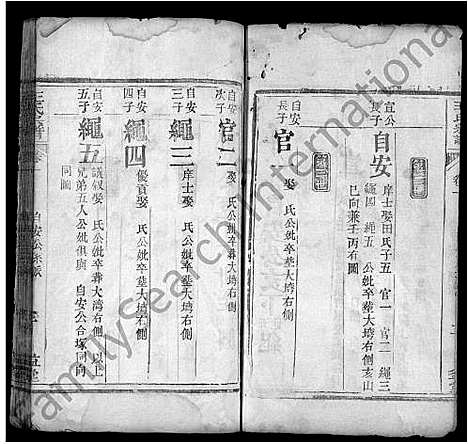 宣公
長子
自安
庠士娶田氏子五 官一 官二 繩三
繩四 繩五 公妣卒塟大塆右側亥山
巳向兼壬丙右圖
自安
長子
官一
娶 氏公妣卒塟大塆右側
自安
次子
官二
娶 氏公妣卒塟大塆右側
自安
三子
繩三
庠士娶 氏公妣卒塟大塆右側
自安
四子
繩四
優貢娶 氏公妣卒塟大塆右側
自安
五子
繩五
議叙娶 氏公妣卒葬大灣右側 以上
兄弟五人公妣俱與 自安公合塚同向
同圖
自安公系派
FamilySearch International